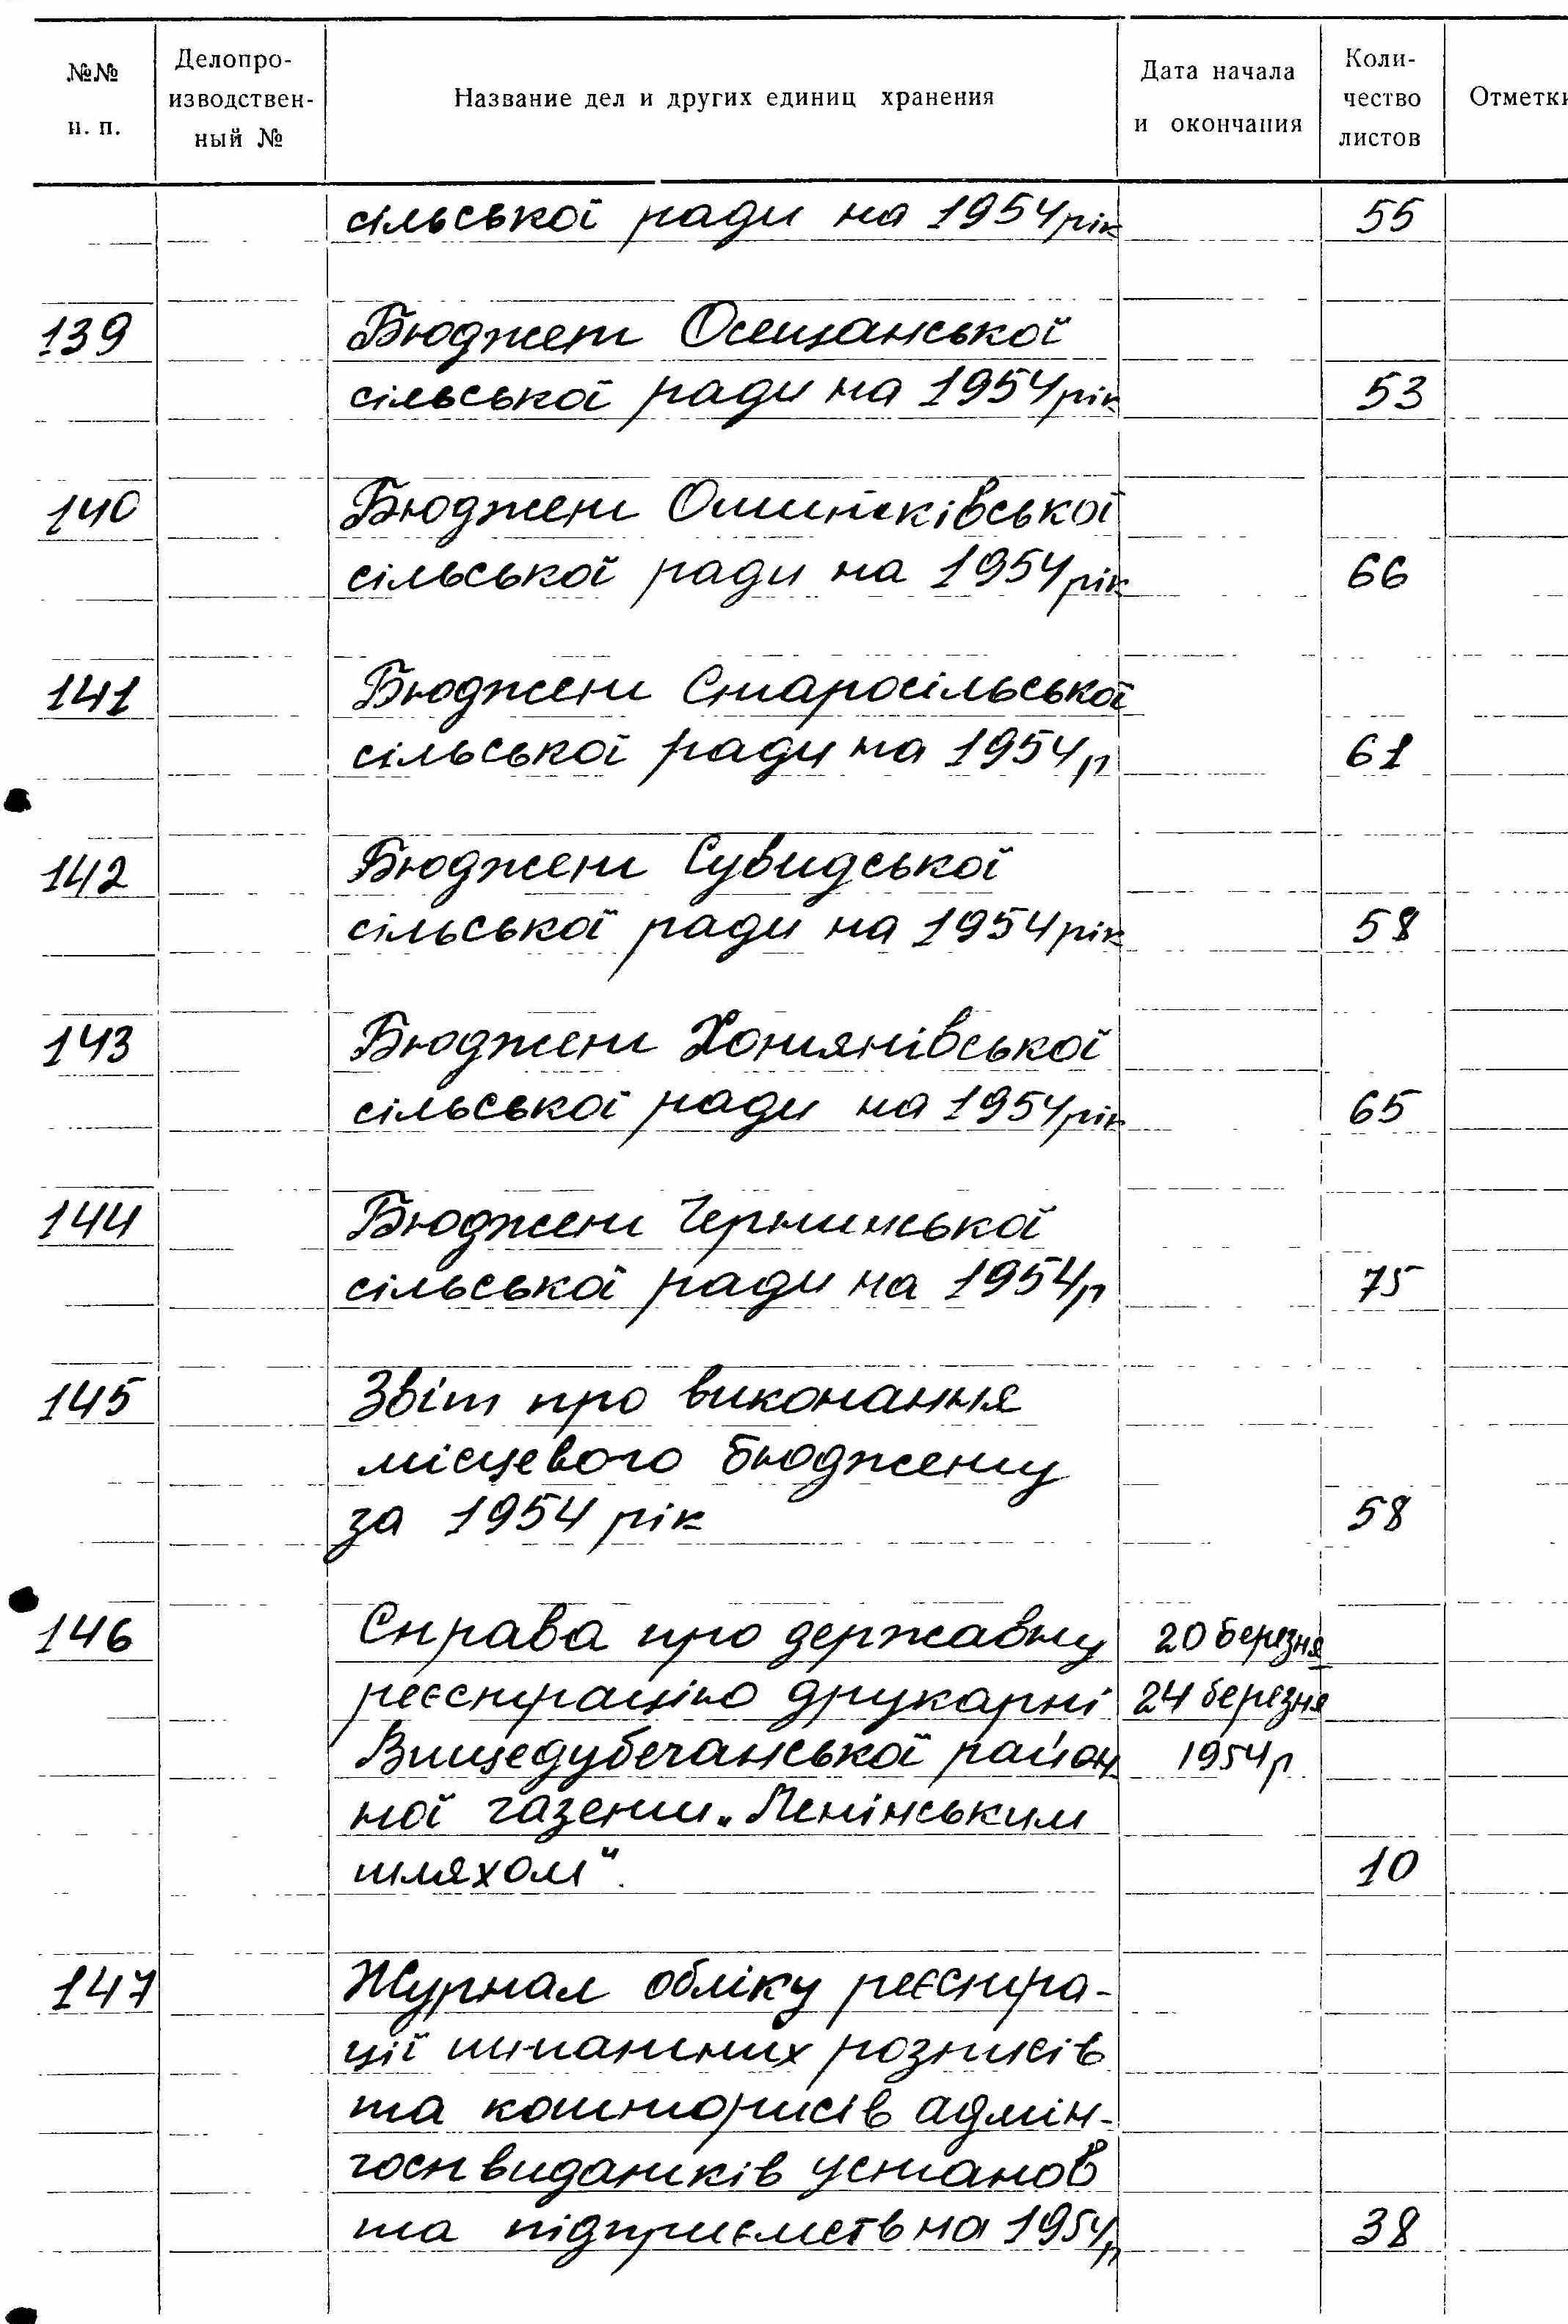 №№ н. п. Делопроизводственный № Название дел и других единиц хранения Дата начала и окончания Количество листов Отметки
сільської ради на 1954 рік 55
139 Бюджет Осещанської
сільської ради на 1954 рік 53
140 Бюджет
сільської ради на 1954 рік 66
141 Бюджет Старосільської
сільської ради на 1954 р 61
142 Бюджет Сувидської
сільської ради на 1954 рік 58
143 Бюджет Хотянівської
сільської ради на 1954 рік 65
144 Бюджет Чернинської
сільської ради на 1954 р 75
145 Звіт про виконання
місцевого бюджету
за 1954 рік 58
146 Справа про державну 20 березня
реєстрацію друкарні 24 березня
Вищедубечанської район 1954 р
ної газети „Ленінським
шляхом“. 10
147 Журнал обліку реєстра-
ції штатних розписів
та кошторисів адмін-
госпвидатків установ
та підприємств на 1954 р 38